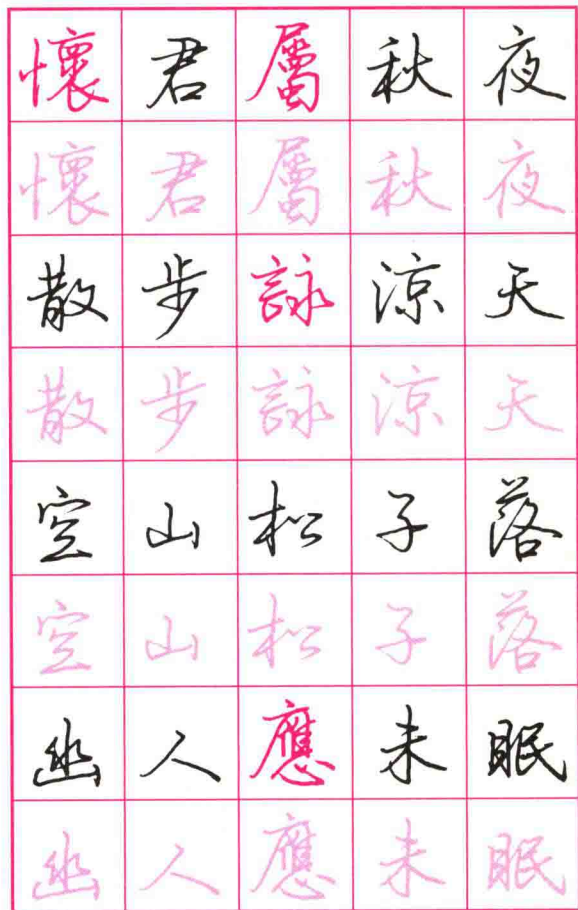 懷君屬秋夜
懷君屬秋夜
散步詠涼天
散步詠涼天
空山松子落
空山松子落
幽人應未眠
幽人應未眠